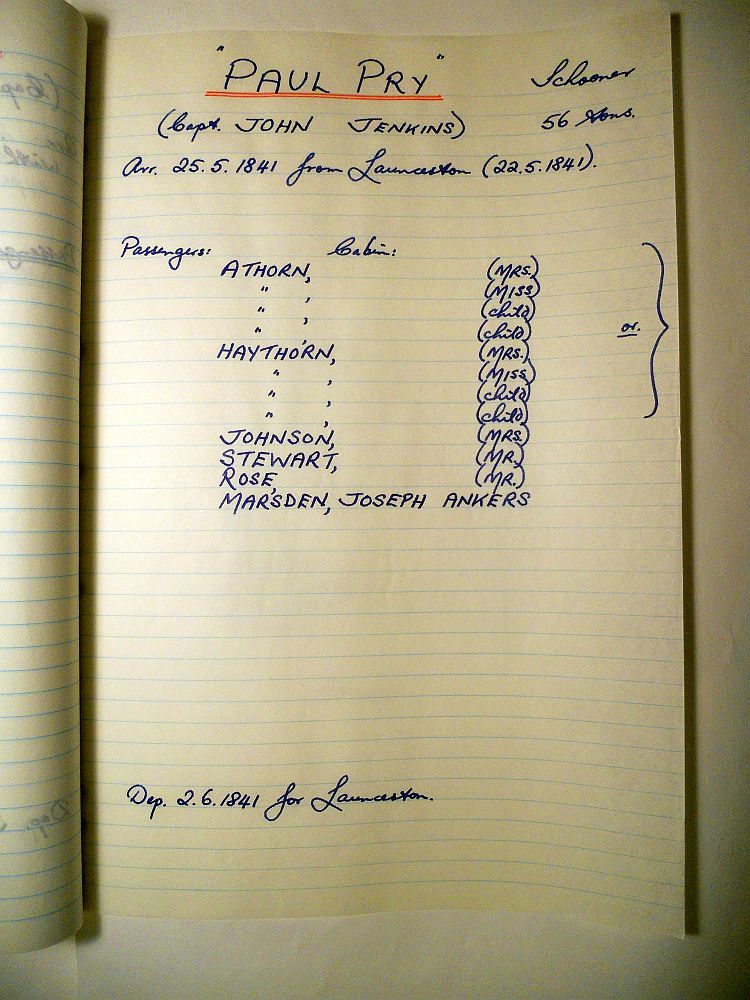 "PAUL PRY" Schooner
(Capt. JOHN JENKINS) 56 tons.
Arr. 25.5.1841 from Launceston (22.5.1841).
Passengers: Cabin:
ATHORN, (MRS.)
" , (MISS)
" , (child)
" , (child) or.
HAYTHORN, (MRS.)
" , (MISS)
" , (child)
" , (child)
JOHNSON, (MRS.)
STEWART, (MR.)
ROSE, (MR.)
MARSDEN, JOSEPH ANKERS
Dep. 2.6.1841 for Launceston.